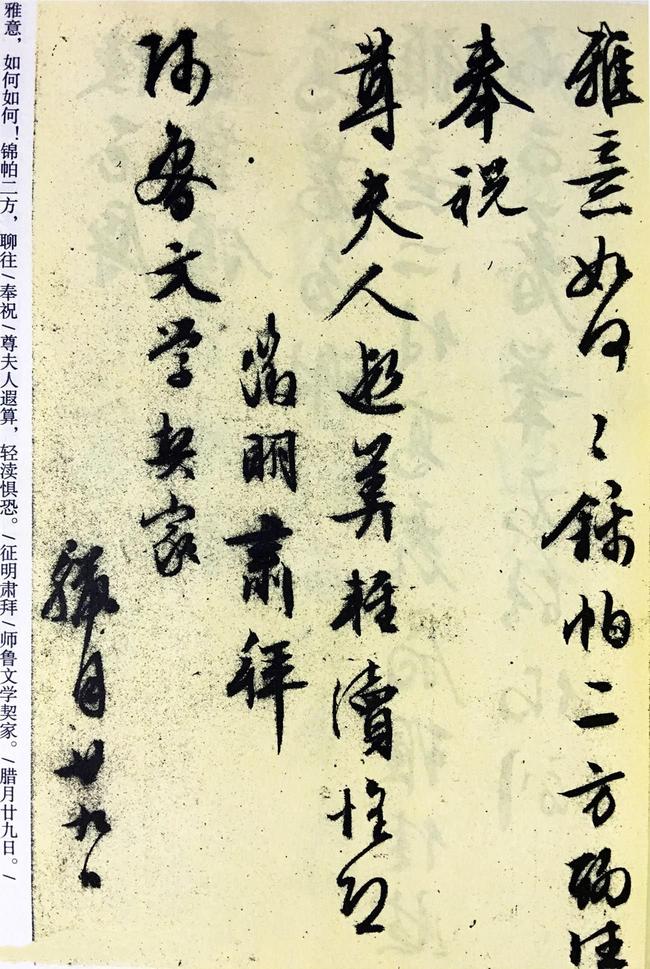 雅意如何〻錦帕二方聊往
奉祝
尊夫人遐算輕瀆惶恐
徵明肅拜
師魯文学契家
臘月廿九日
雅意，如何如何！锦帕二方，聊往/奉祝/尊夫人遐算，轻渎惧恐。/征明肃拜/师鲁文学契家。/腊月廿九日。/